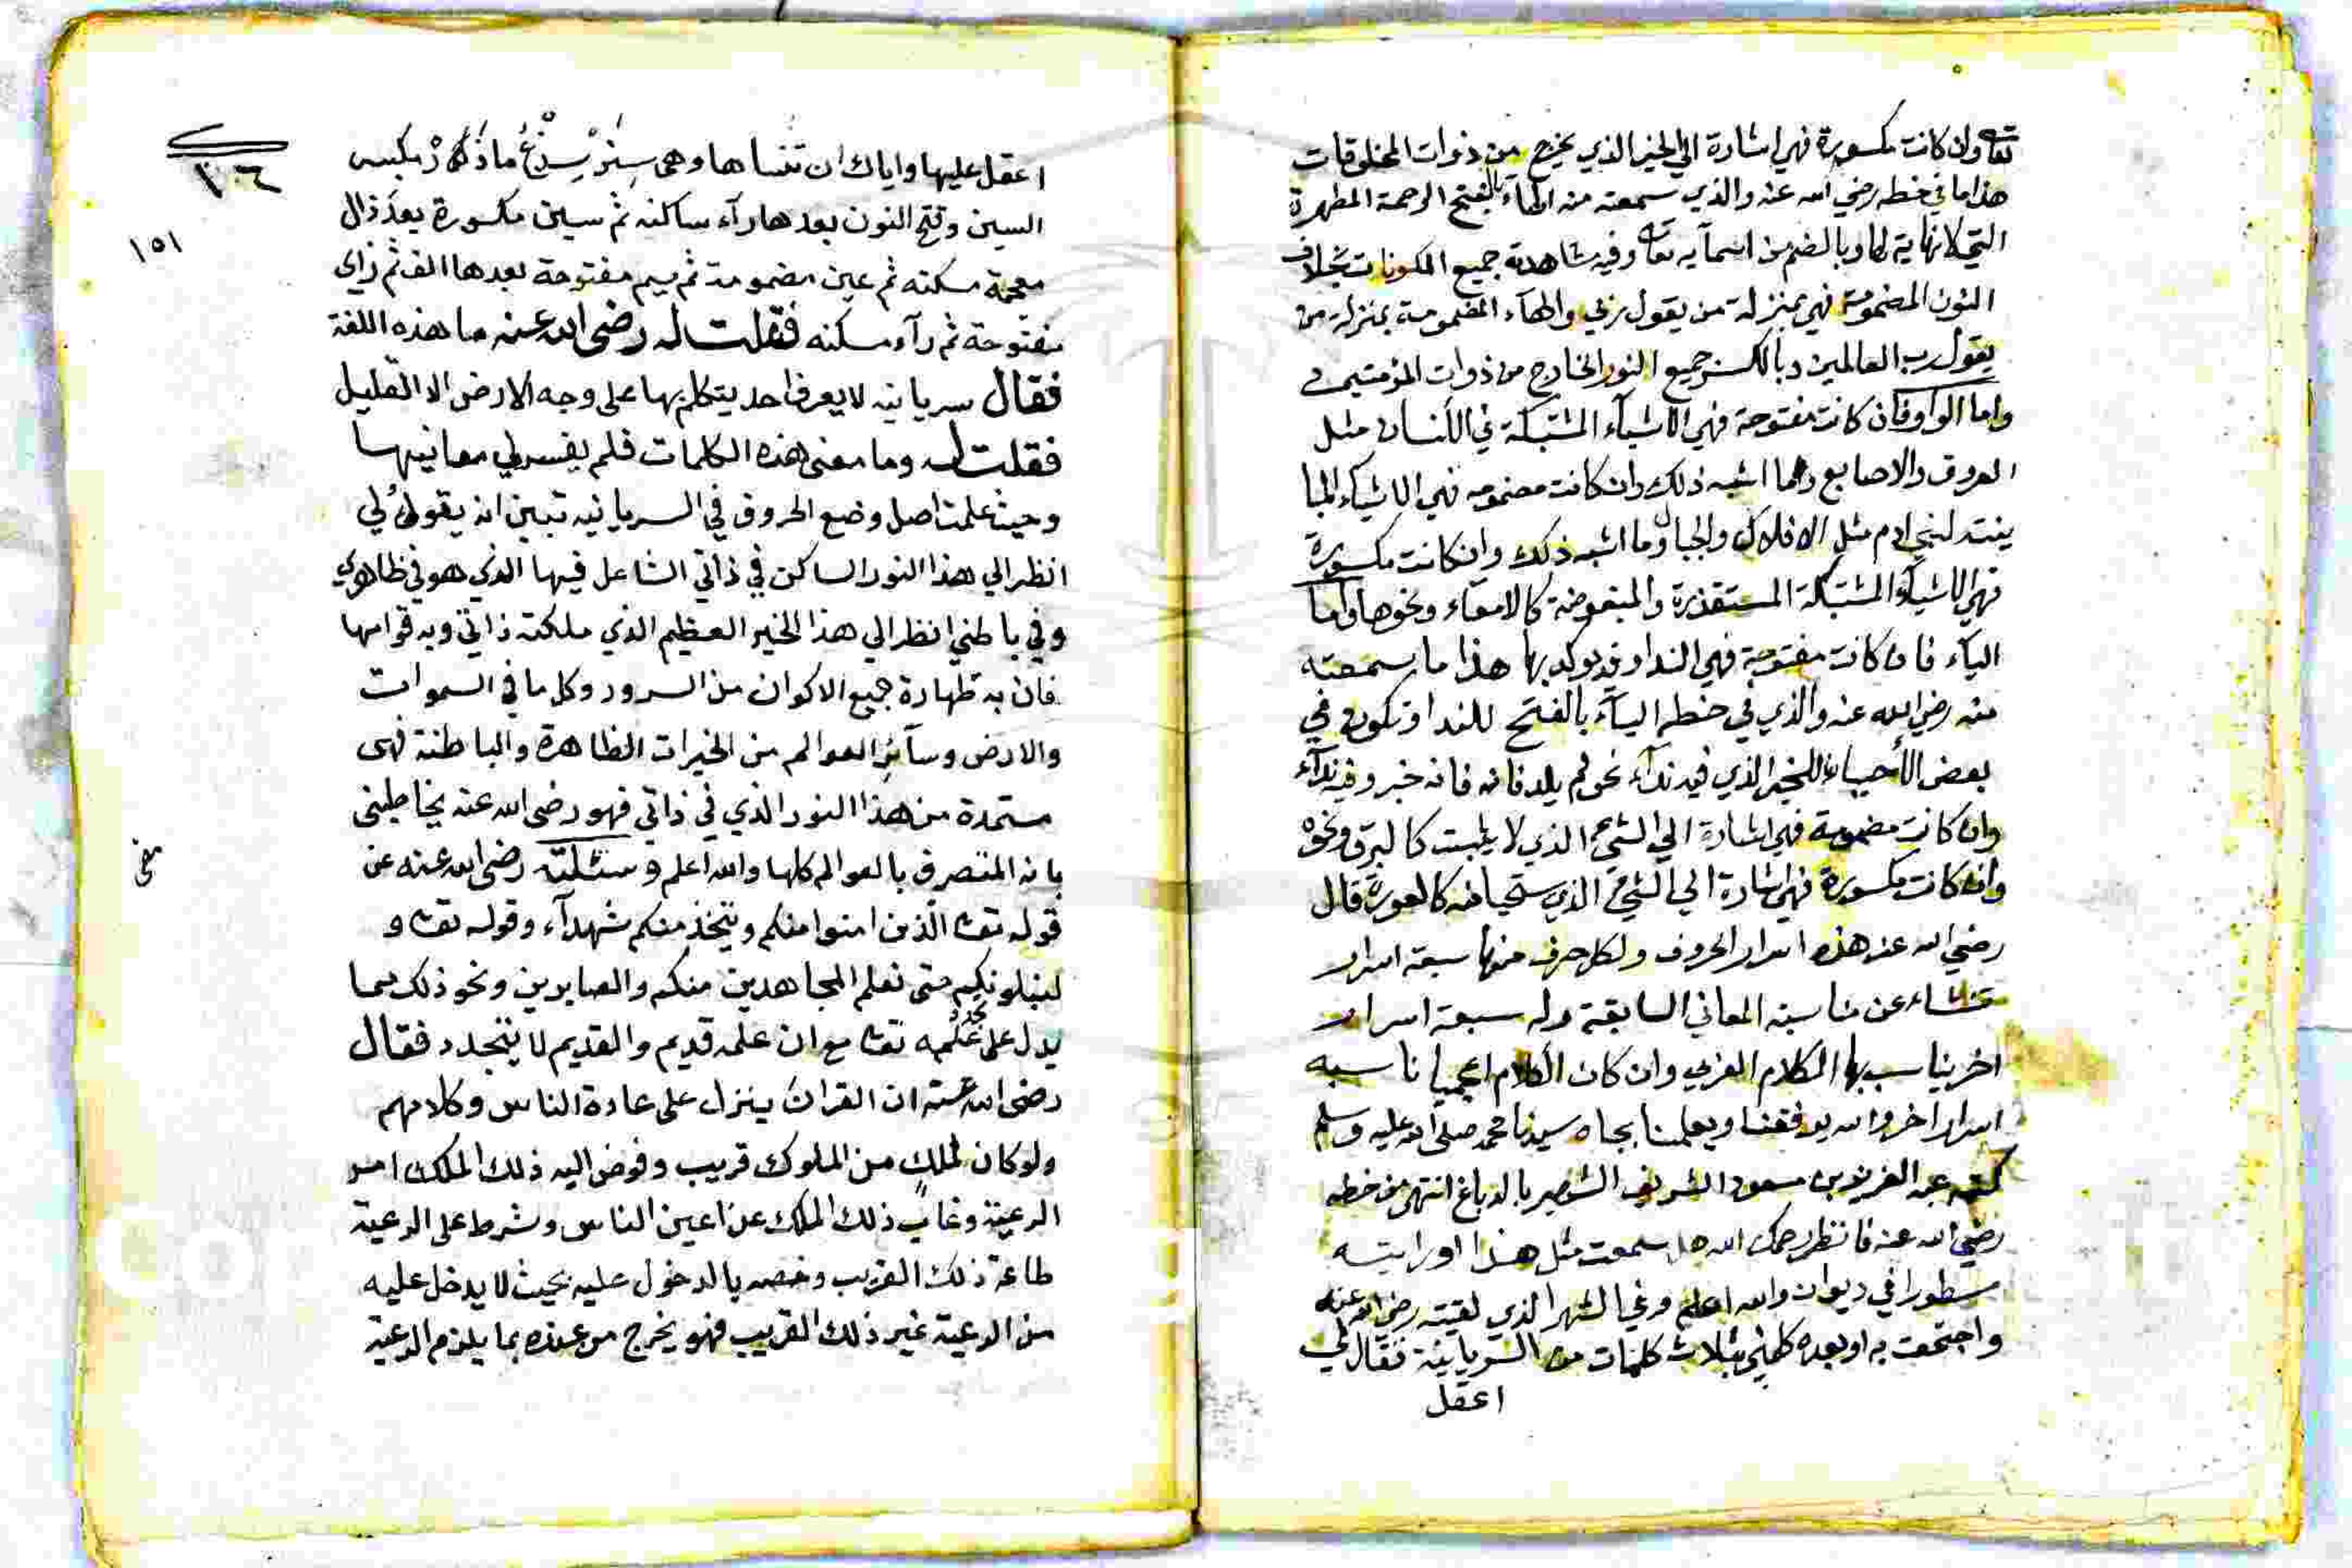 تعا وان كانت مكسورة فهي اشارة الي الخير الذي يخرج من ذوات المخلوقات
هذا ما في خطه رضي الله عنه والذي سمعته منه الهاء بالفتح الرحمة المطهرة
التي لا نهاية لها وبالضم من اسمآيه تعا وفيه مشاهدة جميع المكونات بخلاف
النون المضمومة فهي بمنزلة من يقول ربي والهآء المضمومة بمنزلة من
يقول رب العالمين وبالكسر جميع النور الخارج من ذوات المؤمنين
واما الواو فان كانت مفتوحة فهي الاشيآء المشتبكة في الانسان مثل
العروق والاصابع وما اشبه ذلك وان كانت مضمومه فهي الاشيآء
لبني ادم مثل الافلاك والجبال وما اشبه ذلك وان كانت مكسورة
فهي الاشيآء المشتبكة المستقذرة والمبغوضة كالامعاء ونحوها واما
اليآء فان كانت مفتوحة فهي للندا وقد يوكد بها هذا ما سمعته
منه رضي الله عنه والذي في خطه اليآء بالفتح للندا وتكون في
بعض الأحيان للخبر الذي فيه ندآء نحو لم يلد فانه خبر وفيه ندآء
وان كانت مضمومة فهي اشارة الي الشيء الذي لا يلبث كالبرق ونحوه
وان كانت مكسورة فهي اشارة الي الشيء الذي يستحيا منه كالعورة قال
رضي الله عنه هذه اسرار الحروف ولكل حرف منها سبعة اسرار
تنشاء عن مناسبة المعاني السابقة وله سبعة اسرار
اخر يناسب بها الكلام العربي وان كان الكلام اعجميا ناسبه
اسرار اخر والله يوفقنا ويعلمنا بجاه سيدنا محمد صلى الله عليه وسلم
كتبه عبد العزيز بن مسعود الشريف الشهير بالدباغ انتهى من خطه
رضي الله عنه فانظر رحمك الله هل سمعت مثل هذا او رايته
مسطورا في ديوان والله اعلم وفي الشهر الذي لقيته رضي الله عنه
واجتمعت به او بعده كلمني بثلاث كلمات من السريانية فقال لي
اعقل
٣٠٦
١٥١
اعقل عليها واياك ان تنساها وهي سِنَرْ سِذْعُ مازَرْ بكسر
السين وفتح النون بعدها رآء ساكنه ثم سين مكسورة بعد ذال
معجمة مسكنه ثم عين مضمومة ثم ميم مفتوحة بعدها الف ثم زاي
مفتوحة ثم رآء مسكنه فقلت له رضى الله عنه ما هذه اللغة
فقال سريانيه لا يعرف احد يتكلم بها على وجه الارض الا القليل
فقلت له وما معنى هذه الكلمات فلم يفسر لي معانيها
وحيث علمت اصل وضع الحروف في السريانيه تبين انه يقول لي
انظر الي هذا النور الساكن في ذاتي الشاعل فيها الذي هو في ظاهري
وفي باطني انظر الي هذا الخير العظيم الذي ملكته ذاتي وبه قوامها
فان به طهارة جميع الاكوان من السرور وكل ما في السموات
والارض وسآئر العوالم من الخيرات الظاهرة والباطنة فهى
مستمدة من هذا النور الذي في ذاتي فهو رضى الله عنه يخاطبنى
بانه المتصرف بالعوالم كلها والله اعلم وسئلته رضى الله عنه عن
قوله تعا الذين امنوا منكم ويتخذ منكم شهدآء وقوله تعا و
لنبلونكم حتى نعلم المجاهدين منكم والصابرين ونحو ذلك مما
يدل على تجدد علمه تعا مع ان علمه قديم والقديم لا يتجدد فقال
رضى الله عنه ان القران ينزل على عادة الناس وكلامهم
ولو كان لملك من الملوك قريب وفوض اليه ذلك الملك امر
الرعية وغاب ذلك الملك عن اعين الناس وشرط على الرعية
طاعة ذلك القريب وخصه بالدخول عليه بحيث لا يدخل عليه
من الرعية غير ذلك القريب فهو يخرج من عنده بما يلزم الرعية